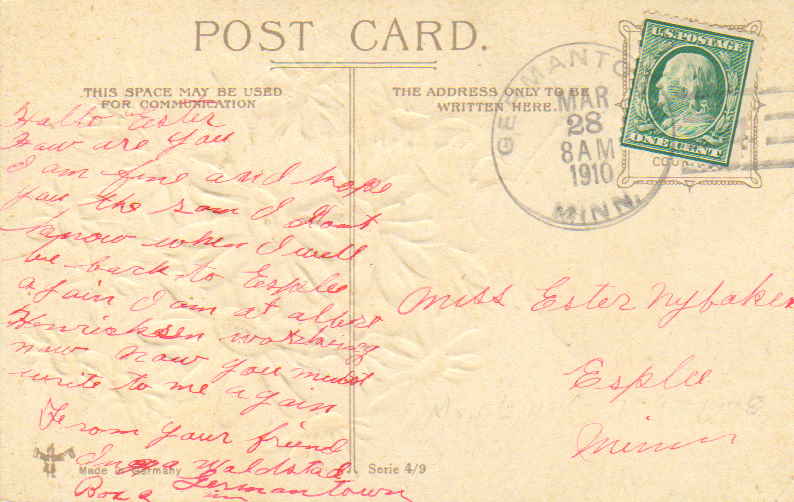 POST CARD.
THIS SPACE MAY BE USED
FOR COMMUNICATION
THE ADDRESS ONLY TO BE
WRITTEN HERE.
GERMANTO
MAR
28
8 AM
1910
MINN.
U.S. POSTAGE
ONE CENT
Hallo Ester
How are you
I am fine and hope
you the sam I dont
know when I will
be back to Esplee
again I am at albert
Henricksen working
now now you must
write to me again
From your friend
Inga Waldstad
Box a Germantown
Miss Ester Nybaken
Esplee
Minn
Made in Germany
Serie 4/9